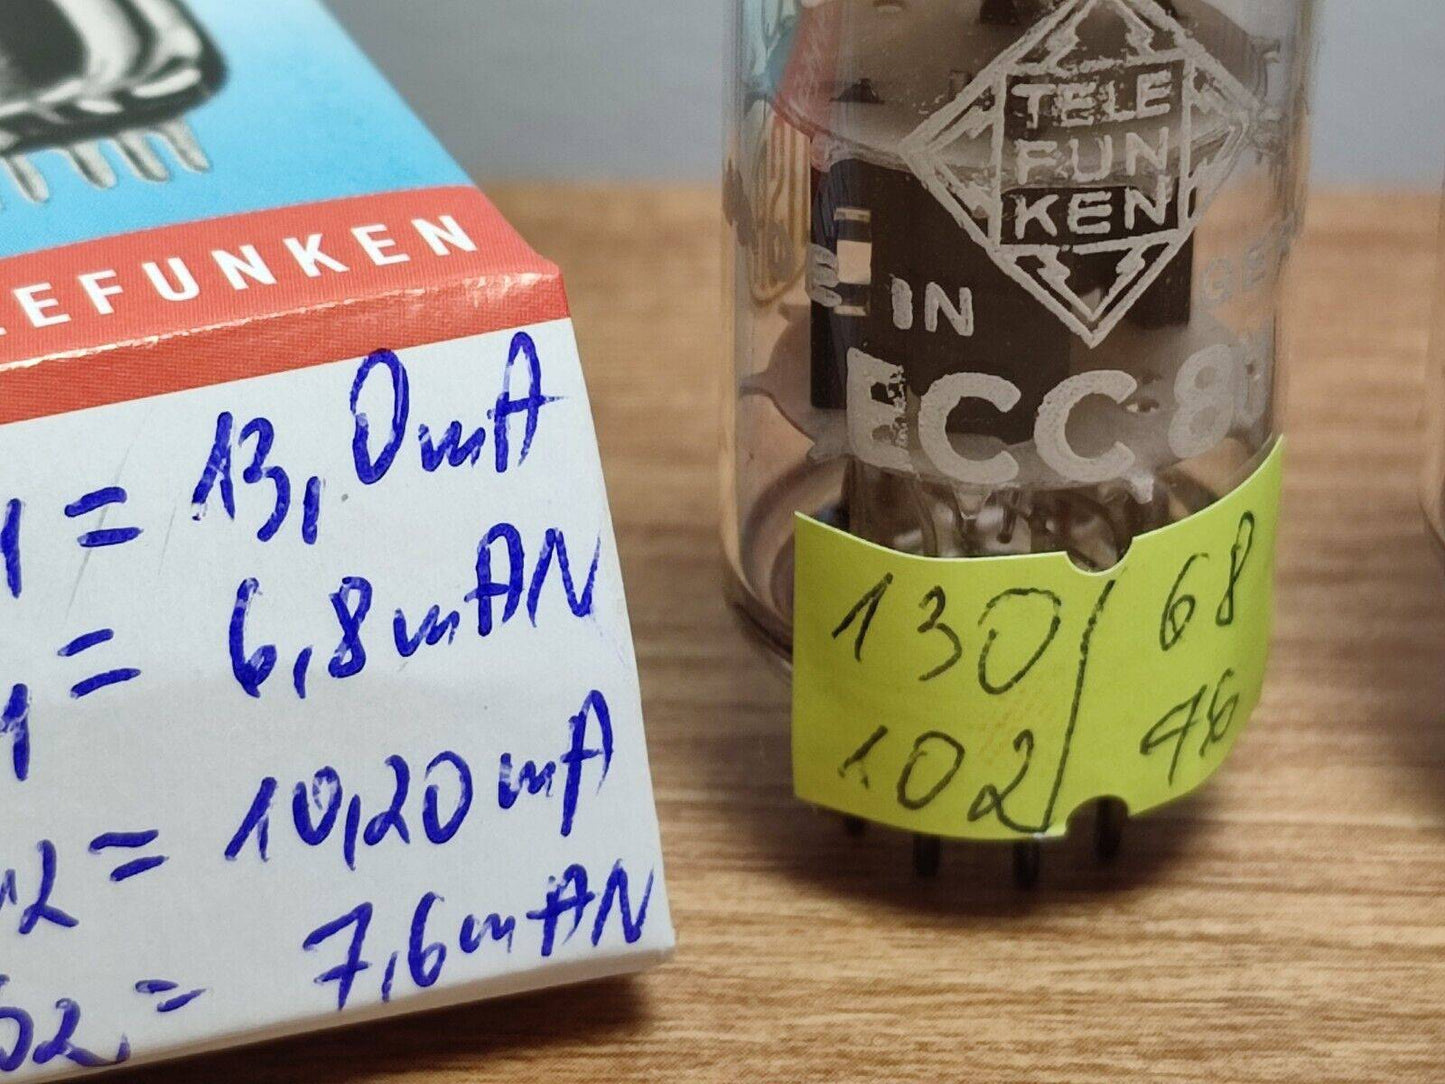 EFUNKEN
1 = 13,0mA
1 = 6,8mAN
2 = 10,20mA
2 = 7,6mAN
TELE
FUN
KEN
E IN GE
ECC 8
130/68
102/76